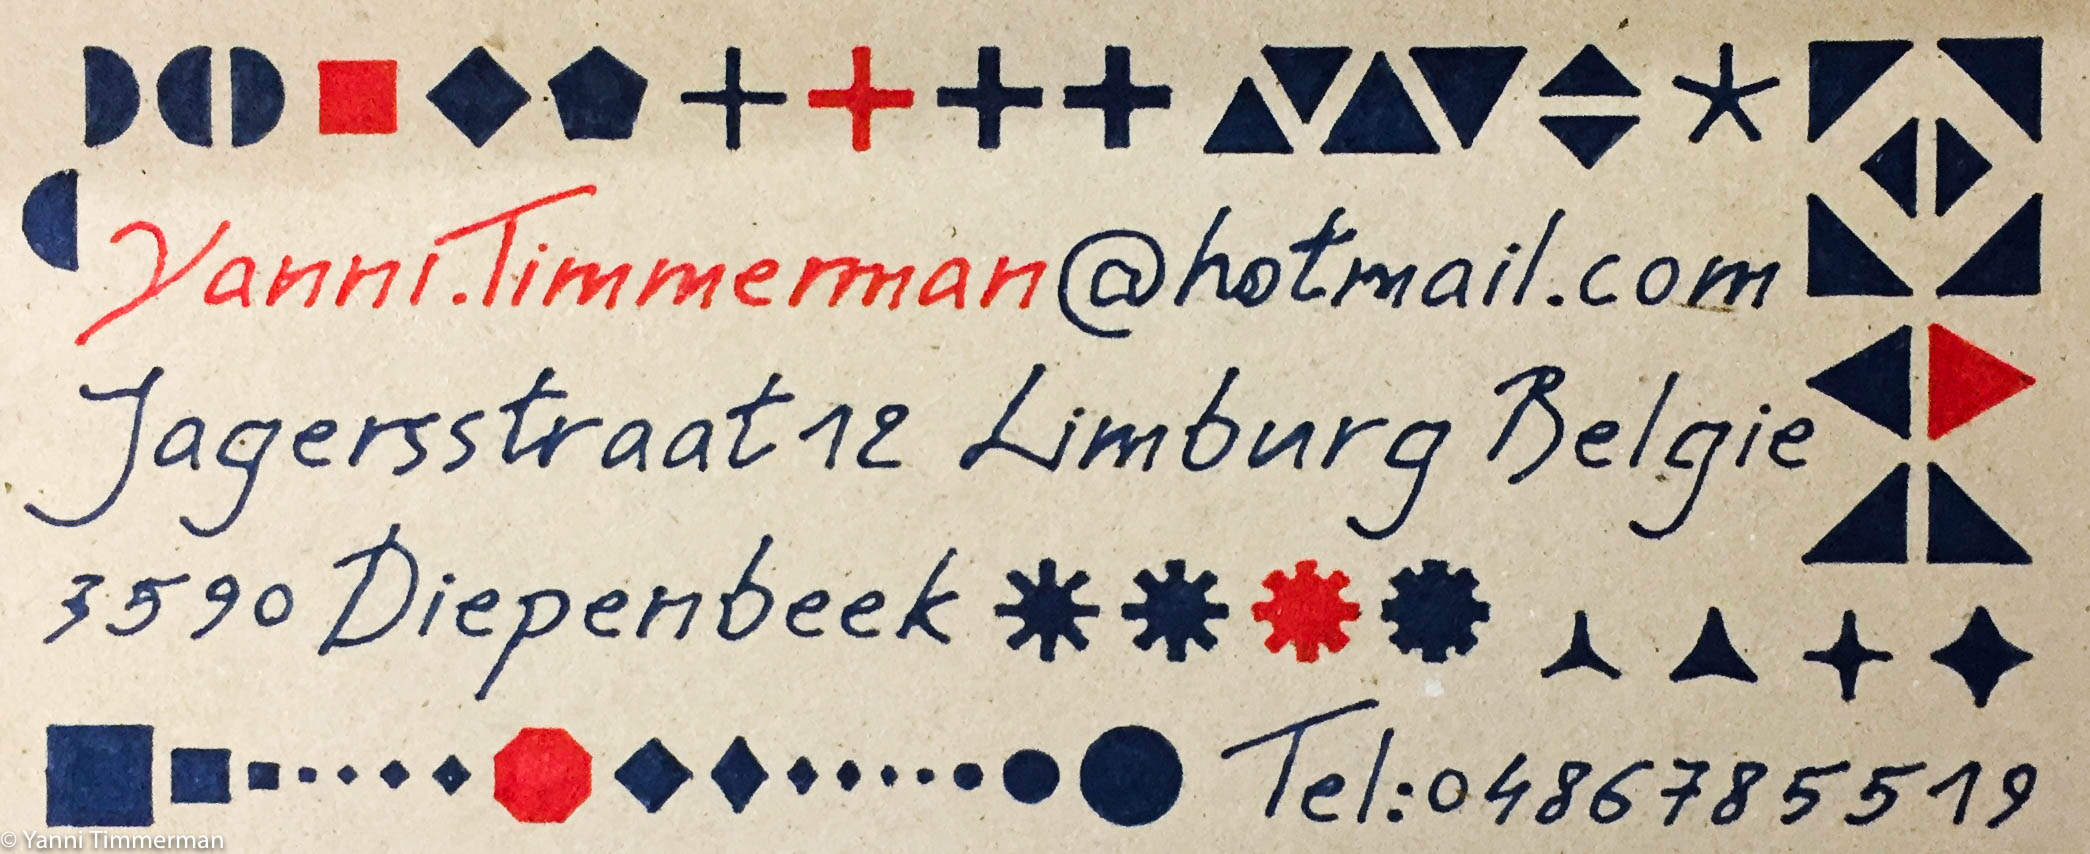 Yanni.Timmerman@hotmail.com
Jagersstraat 12 Limburg Belgie
3590 Diepenbeek
Tel:0486785519
© Yanni Timmerman